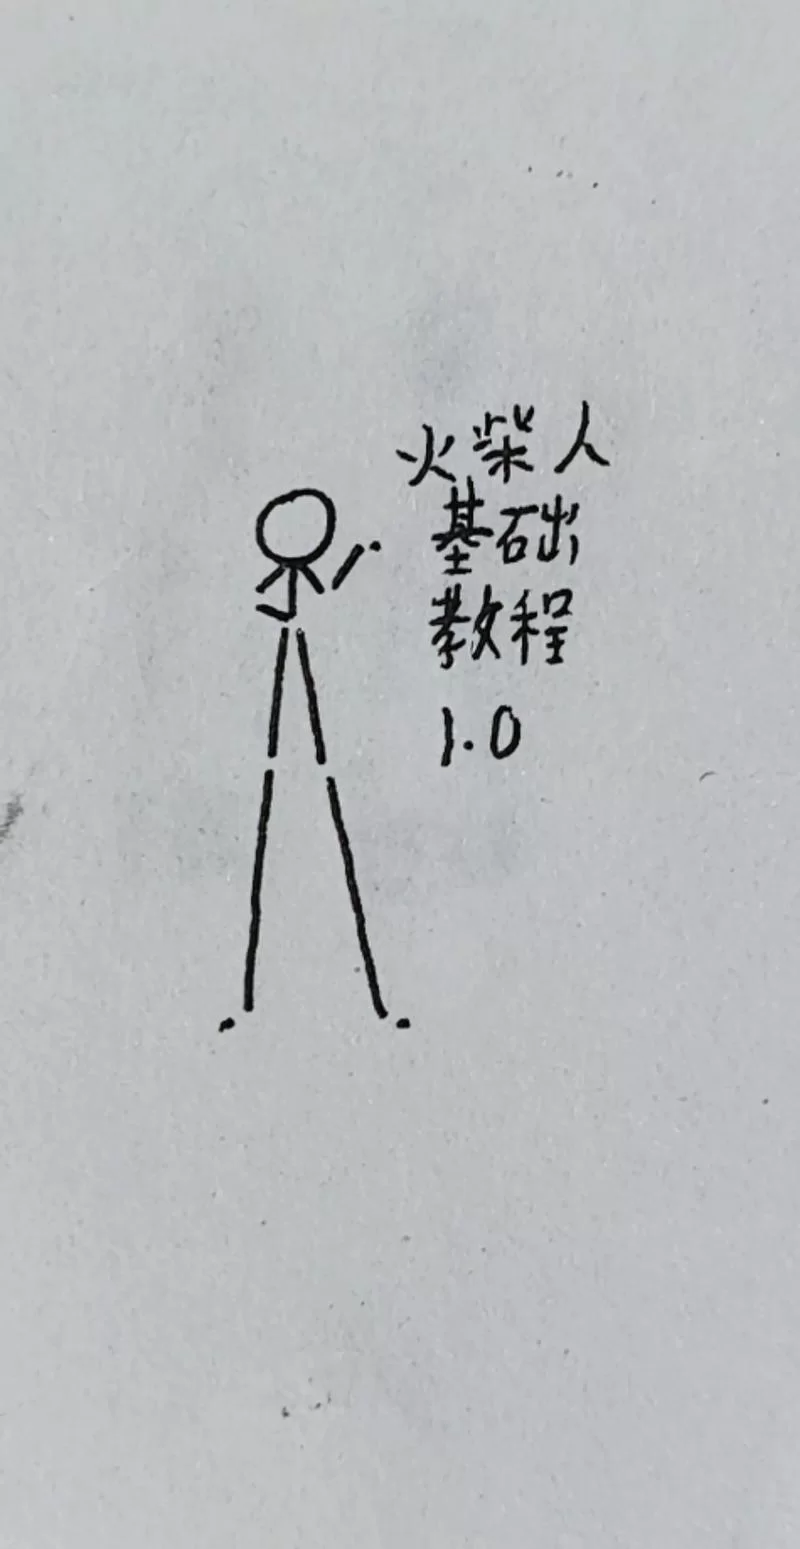 火柴人
基础
教程
1.0